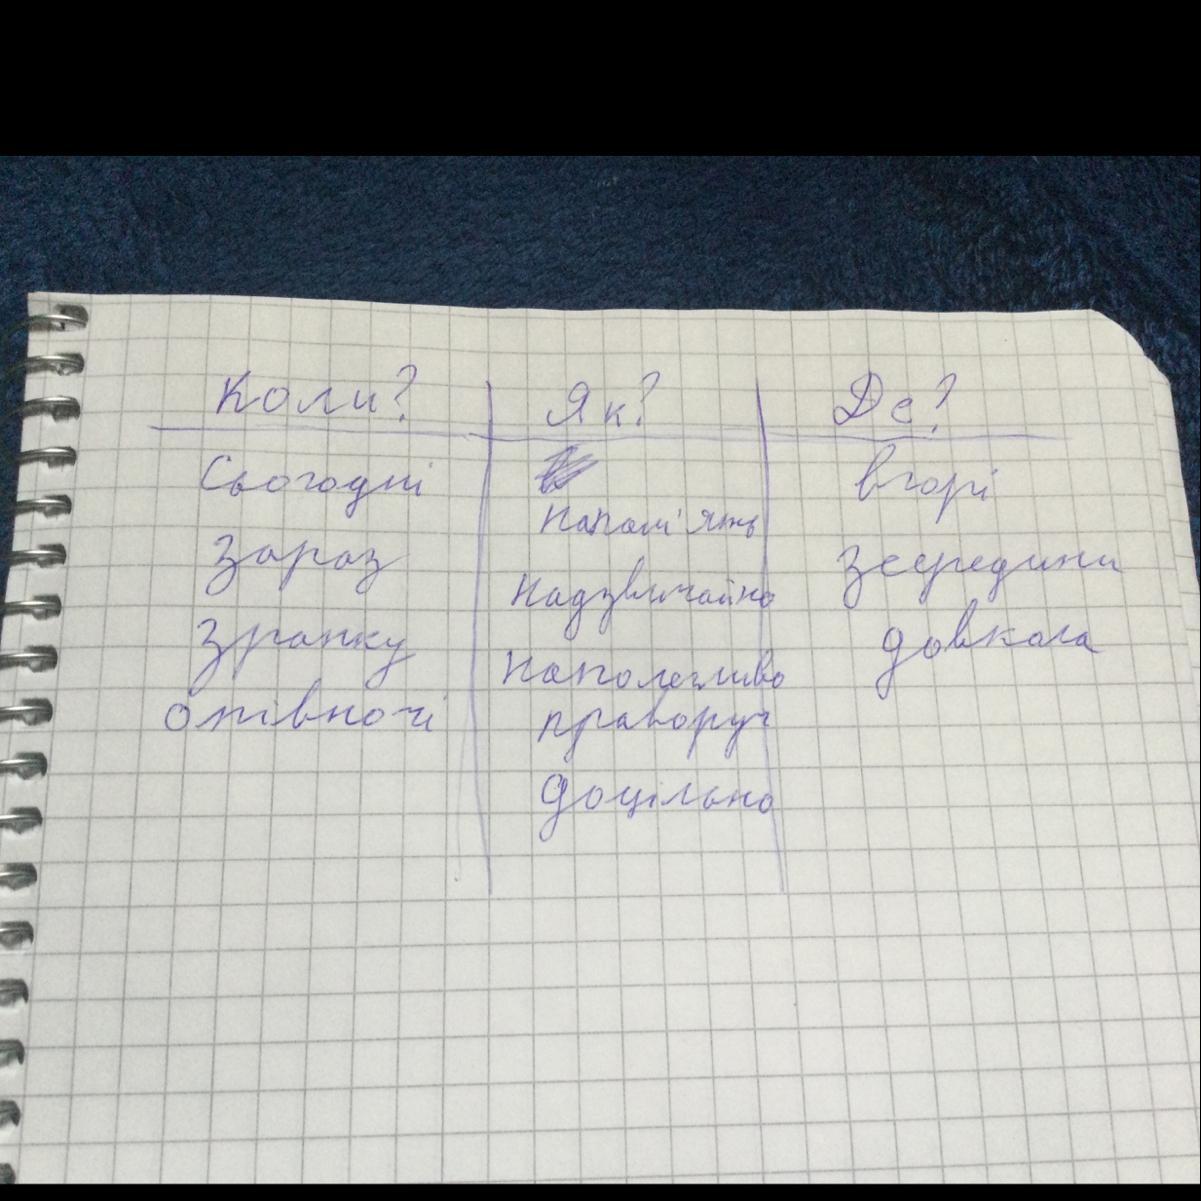 Коли? Як? Де?
Сьогодні вгорі
напам'ять
Зараз Зсередини
Надзвичайно
Зранку довкола
наполегливо
опівночі праворуч
Доцільно